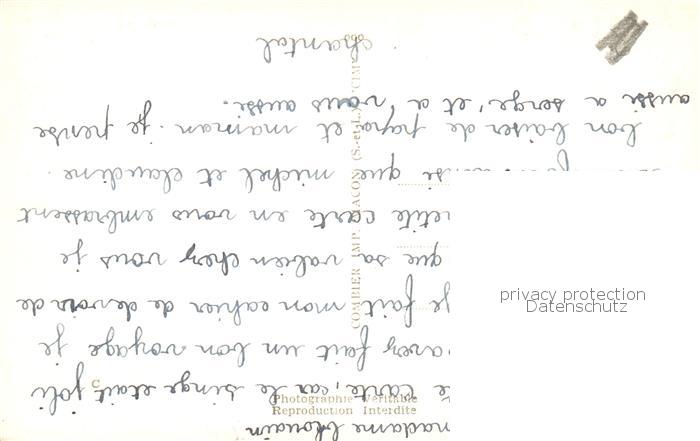 madame
carte, car le singe etait joli
avez fait un bon voyage je
je fait mon cahier de devoir de
que sa vabien chez vous je
etite carte en vous embrassent
que michel et claudine.
bon baiser de papa et maman. je pense
aussi a serge, et a vous aussi.
chantal
COMBIER IMP. MACON (S.-et-L.) "CIM"
Photographie Véritable
Reproduction Interdite
privacy protection
Datenschutz